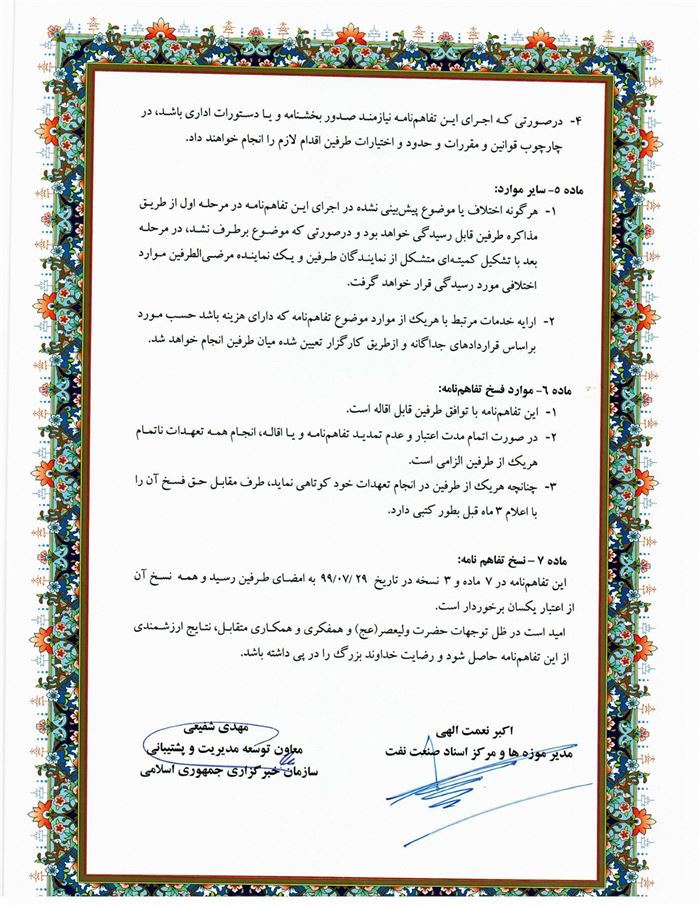 ۴- درصورتی که اجرای این تفاهم‌نامه نیازمند صدور بخشنامه و یا دستورات اداری باشد، در
چارچوب قوانین و مقررات و حدود و اختیارات طرفین اقدام لازم را انجام خواهند داد.
ماده ۵- سایر موارد:
۱- هرگونه اختلاف یا موضوع پیش‌بینی نشده در اجرای این تفاهم‌نامه در مرحله اول از طریق
مذاکره طرفین قابل رسیدگی خواهد بود و درصورتی که موضوع برطرف نشد، در مرحله
بعد با تشکیل کمیته‌ای متشکل از نمایندگان طرفین و یک نماینده مرضی‌الطرفین موارد
اختلافی مورد رسیدگی قرار خواهد گرفت.
۲- ارایه خدمات مرتبط با هریک از موارد موضوع تفاهم‌نامه که دارای هزینه باشد حسب مورد
براساس قراردادهای جداگانه و ازطریق کارگزار تعیین شده میان طرفین انجام خواهد شد.
ماده ۶- موارد فسخ تفاهم‌نامه:
۱- این تفاهم‌نامه با توافق طرفین قابل اقاله است.
۲- در صورت اتمام مدت اعتبار و عدم تمدید تفاهم‌نامه و یا اقاله، انجام همه تعهدات ناتمام
هریک از طرفین الزامی است.
۳- چنانچه هریک از طرفین در انجام تعهدات خود کوتاهی نماید، طرف مقابل حق فسخ آن را
با اعلام ۳ ماه قبل بطور کتبی دارد.
ماده ۷ – نسخ تفاهم نامه:
این تفاهم‌نامه در ۷ ماده و ۳ نسخه در تاریخ ۲۹ /۹۹/۰۷ به امضای طرفین رسید و همه نسخ آن
از اعتبار یکسان برخوردار است.
امید است در ظل توجهات حضرت ولیعصر(عج) و همفکری و همکاری متقابل، نتایج ارزشمندی
از این تفاهم‌نامه حاصل شود و رضایت خداوند بزرگ را در پی داشته باشد.
اکبر نعمت الهی
مدیر موزه ها و مرکز اسناد صنعت نفت
مهدی شفیعی
معاون توسعه مدیریت و پشتیبانی
سازمان خبرگزاری جمهوری اسلامی